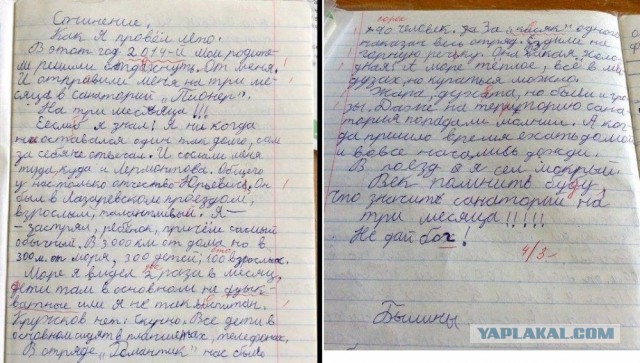 Сочинение.
Как я провёл лето.
В этот год 2014-й мои родите-
ли решили отдохнуть. От меня.
И отправили меня на три ме-
сяца в санаторий "Пионер".
На три месяца!!!
Если я знал! Я никогда
не оставался один так долго, сам
за себя не отвечал. И сослали меня
туда, куда и Лермонтова. Общего
у нас только отчество Юрьевич. Он
был в Лазаревском проездом,
взрослым, талантливый. Я—
— застрял, ребёнок, причём самый
обычный. В 3.000 км от дома но в
300 м. от моря, 300 детей, 100 взрослых.
сто
Море я видел 2 раза в месяц,
два
дети там в основном не
или я не так воспитан.
Кружков нет. Скучно. Все дети в
основном сидят в планшетах, телефонах.
В отряде "Романтик" нас было
сорок
40 человек. За одного
наказан весь отряд. Ездили на
горную речку. Она бойкая, холо
дная. А море тёплое, всё в ме
дузах, но купаться можно.
Жара, духота, но были и гро
зы. Даже на территорию сана
тория попадали молнии. А ког
да пришло время ехать домой
и вовсе начались дожди.
В поезд я сел мокрый.
Век помнить буду,
что значит санаторий на
три месяца!!!!!
Не дай бог!
4/3-
Былины
YAPLAKAL.COM